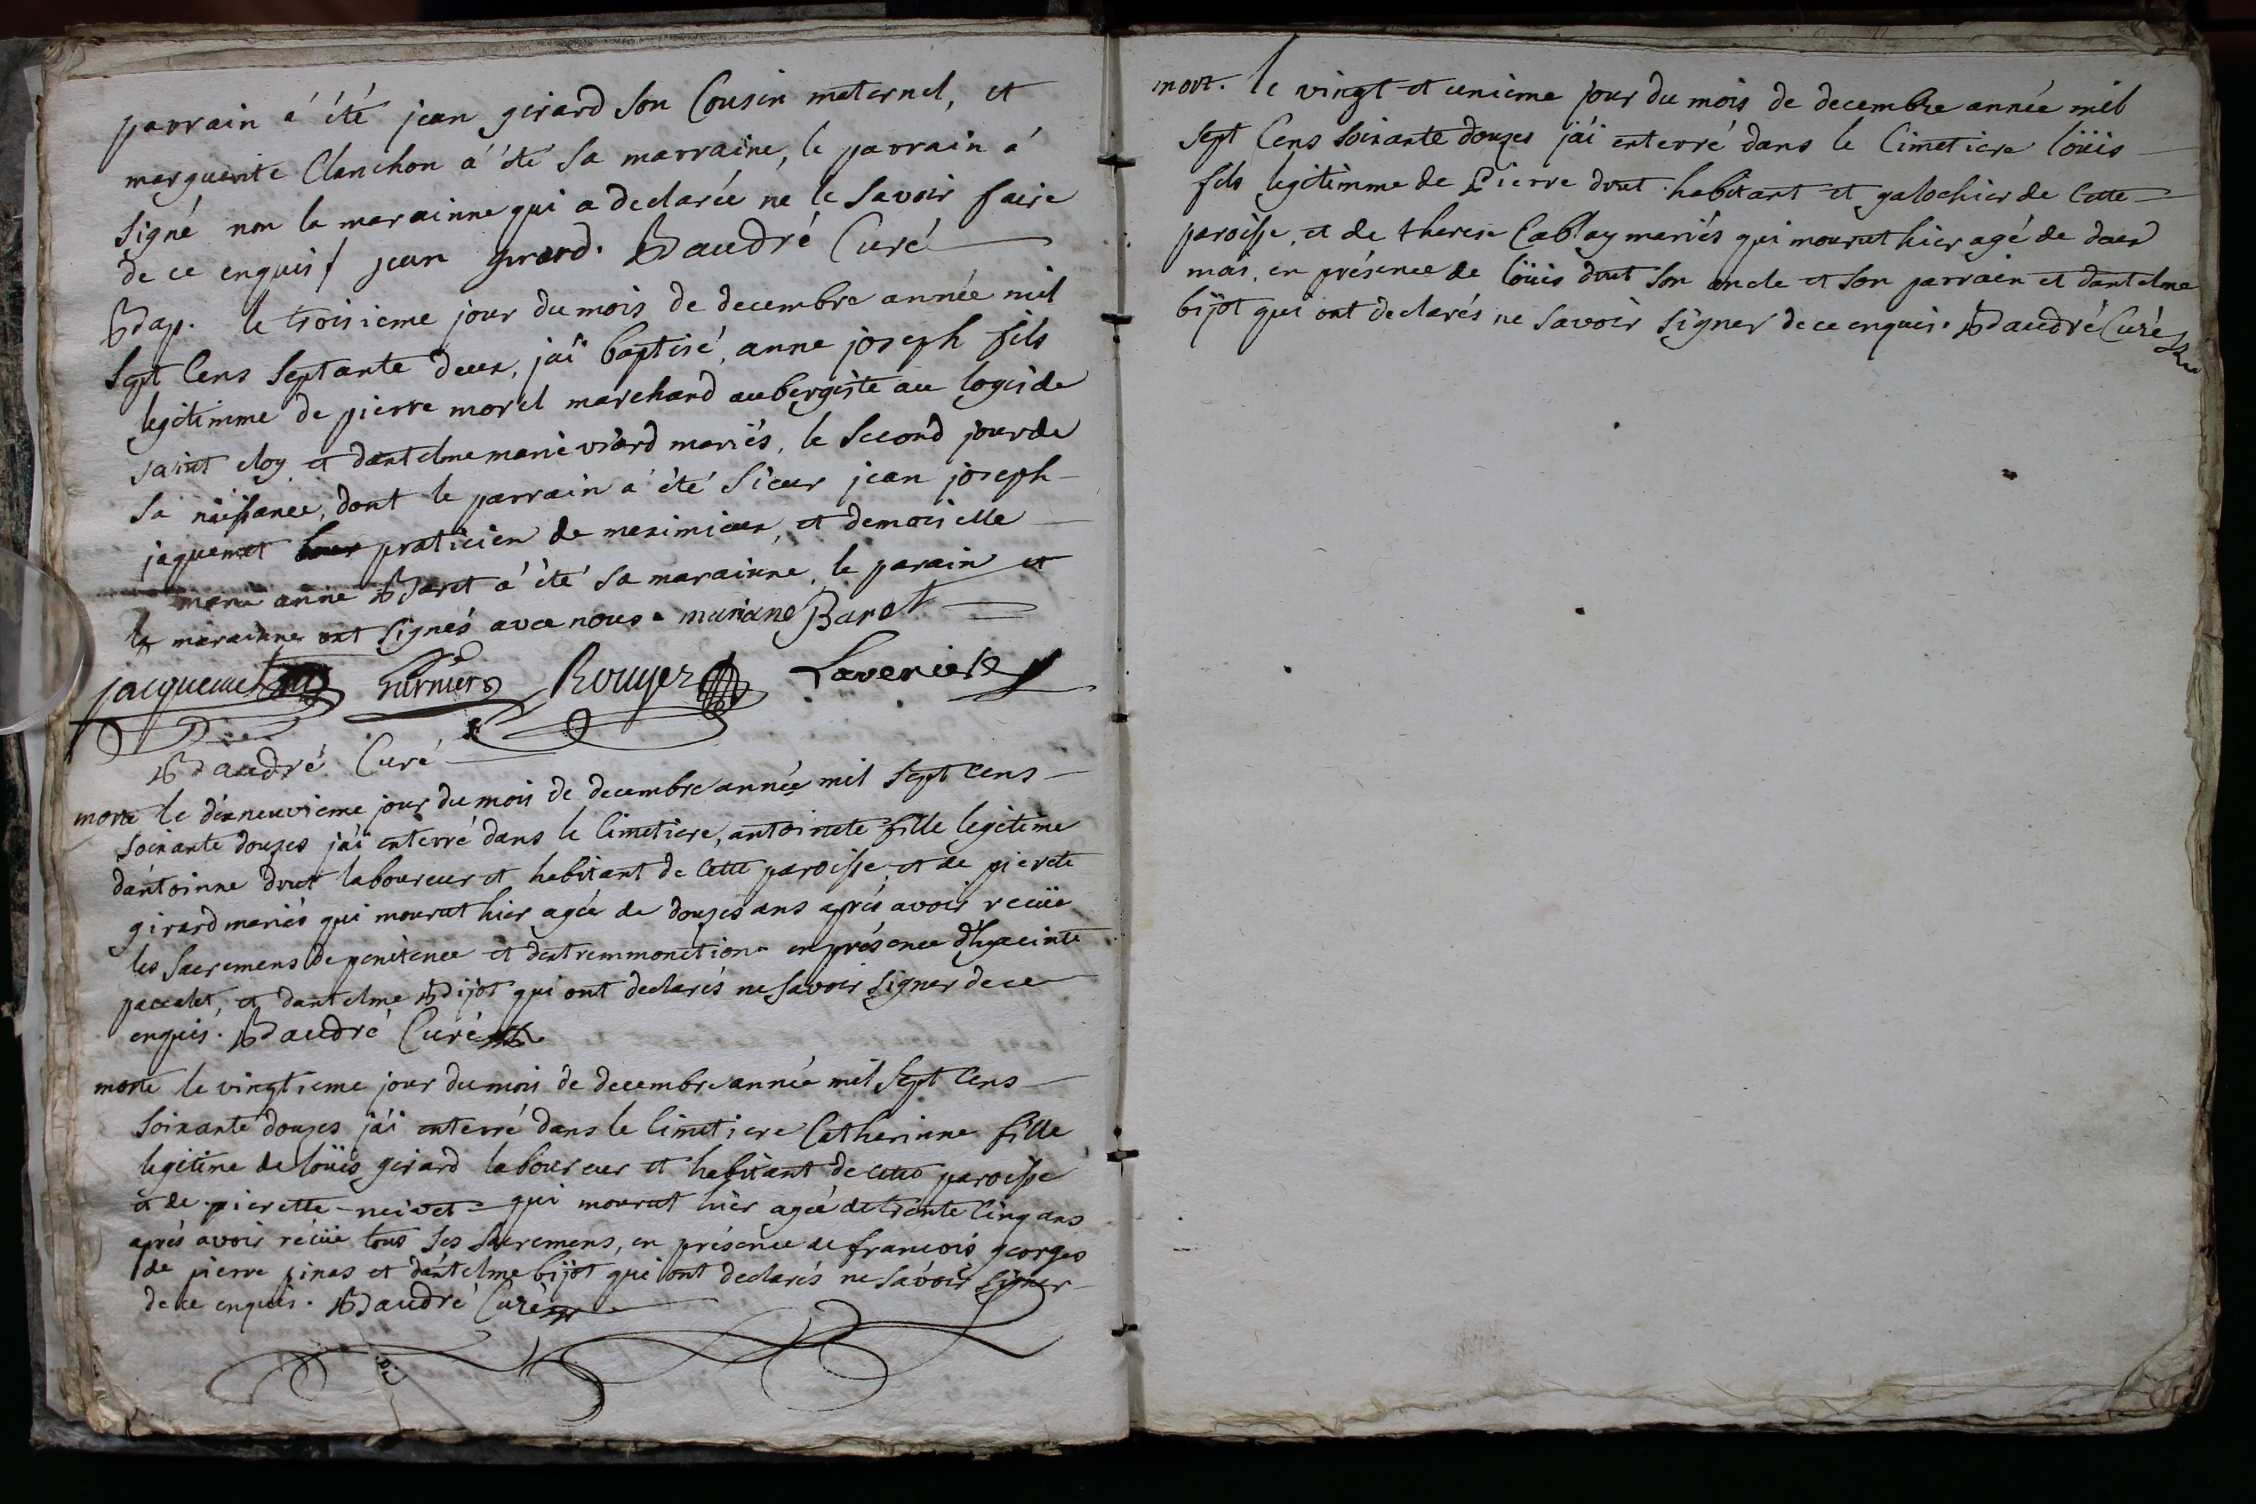 parrain á été jean girard son Cousin maternel, et
marguerite Clanchon á été sa marraine, le parrain á
signé non la marainne qui a declarée ne le savoir faire
de ce enquis / jean girard. Baudré Curé
Bap. le troisieme jour du mois de decembre année mil
sept Cens septante deux, j'ai baptisé, anne joseph fils
legitimme de pierre morel marchand aubergiste au logis de
saint eloy et d'antelme marie viard mariés, le second jour de
sa naissance, dont le parrain á été sieur jean joseph
jaquemet praticien de meximieux, et demoiselle
marie anne Baret á été sa marainne, le parain et
la marainne ont signés avec nous. mariane Baret
jacquemet furnier Rouyer Laveriere
Baudré Curé
morte le dixneuvieme jour du mois de decembre année mil sept Cens
soixante douzes j'ái enterré dans le Cimetiere, antoinete fille legitime
d'antoinne drut laboureur et habitant de Cette paroisse, et de pierete
girard mariés qui mourut hier agée de douzes ans aprés avoir recüe
les sacremens de penitence et d'extremmonction en présence d'hyacinte
paccalet, et d'antelme Bijot qui ont declarés ne savoir signer de ce
enquis. Baudré Curé
morte le vingtieme jour du mois de decembre année mil sept Cens
soixante douzes j'ái enterré dans le Cimetiere Catherinne fille
legitime de loüis girard laboureur et habitant de Cette paroisse
et de pierette neivet qui mourut hier ageé de trente Cinq ans
aprés avoir récüe tous ses sacremens, en présence de francois georges
de pierre pinas et d'antelme bijot qui ont declarés ne savoir signer
de ce enquis. Baudré Curé
mort. le vingt et unieme jour du mois de decembre année mil
sept Cens soixante douzes j'ái enterré dans le Cimetiere loüis
fils legitimme de Pierre drut habitant et galochier de Cette
paroisse, et de therese Cablay mariés qui mourut hier agé de deux
mois, en présence de loüis drut son oncle et son parrain et d'antelme
bijot qui ont declarés ne savoir signer de ce enquis. Baudré Curé